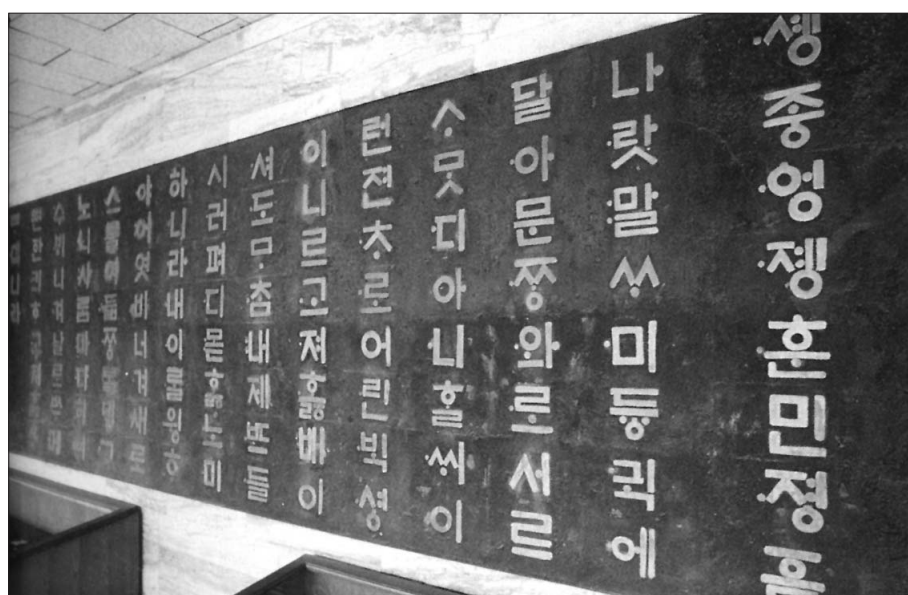 솅종엉졩훈민졍
나랏말ᄊᆞ미듕귁에
달아문ᄍᆞᆼ와로서르
ᄉᆞᄆᆞᆺ디아니ᄒᆞᆯᄊᆡ이
런젼ᄎᆞ로어린ᄇᆡᆨ셩
이니르고져호ᇙ배이
셔도ᄆᆞᄎᆞᆷ내제ᄠᅳ들
시러펴디몯ᄒᆞᇙ노미
하니라내이ᄅᆞᆯ윙ᄒᆞ
야어엿비너겨새로
스믈여듧ᄍᆞᆼᄅᆞᆯᄆᆡᆼᄀᆞ
노니사ᄅᆞᆷ마다
수ᄫᅵ니겨날로ᄡᅮ메